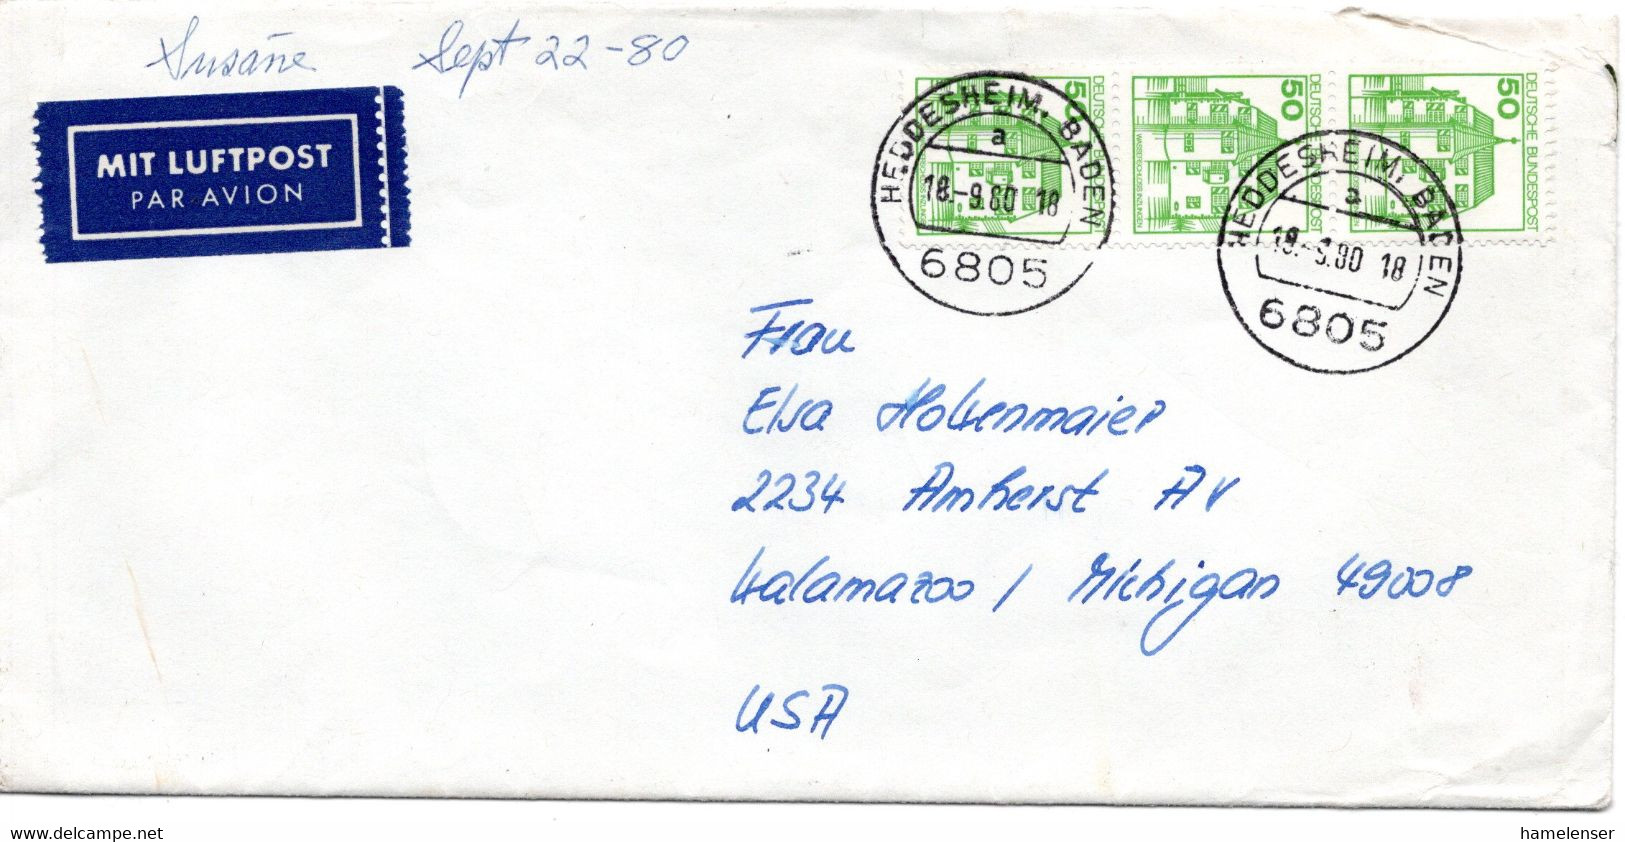 Susañe Sept 22-80
MIT LUFTPOST
PAR AVION
50 DEUTSCHE BUNDESPOST
50 DEUTSCHE BUNDESPOST
50 DEUTSCHE BUNDESPOST
WASSERSCHLOSS INZLINGEN
HEDDESHEIM, BADEN
a
18.-9.80 18
6805
HEDDESHEIM, BADEN
a
18.-9.80 18
6805
Frau
Elsa Holtenmaier
2234 Amherst Av
Kalamazoo / Michigan 49008
USA
delcampe.net
hamelenser